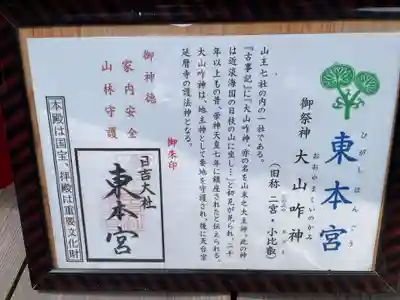 東本宮
ひがしほんぐう
(旧称 二宮・小比叡)
御祭神 大山咋神
おおやまくいのかみ
山王七社の内の一社である。
『古事記』に「大山咋神、亦の名を山末之大主神。此の神
は近淡海国の日枝の山に坐し…」と初見が見られ、二千
年以上もの昔、崇神天皇七年に鎮座されたと伝えられる。
大山咋神は、地主神として要地を守護され、後に天台宗
延暦寺の護法神となる。
御神徳
家内安全
山林守護
御朱印
日吉大社
東本宮
本殿は国宝、拝殿は重要文化財